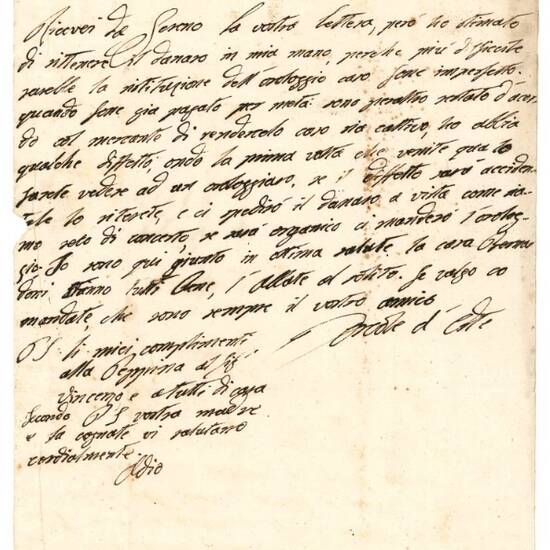 Ricevei da Sereno la vostra lettera, però ho stimato
di ritenere il danaro in mia mano, perche piu difficile
sarebbe la restituzione dell'orologgio caso fone imperfetto.
quando fone gia pagato per metà: sono peraltro restato d'acor
do col mercante di rendercelo caso sia cattivo, ho abbia
qualche diffetto, onde la prima volta che venite qua lo
farete vedere ad un orologgiaro, se il diffetto sarà acciden
tale lo riterete, e ci spedirò il danaro a vista come sia
mo resto di concerto, se sara organico ci manderò l'orolog
gio. Io sono qui giunto in ottima salute. la casa
doni stanno tutti bene, l'Abbate al solito. Se valgo co
mandate, che sono sempre il vostro amico
Ercole d'Este
PS. li miei complimenti
alla Peppina al Sig.
Vincenzo e a tutti di casa
secondo PS vostra madre
e la cognata vi salutano
cordialmente
Adio